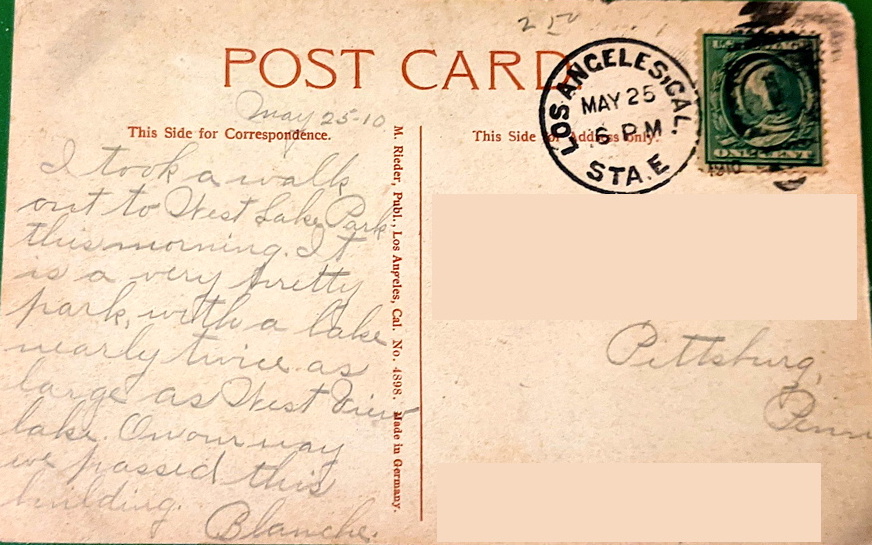 2 50
POST CARD
May 25-10
This Side for Correspondence.
This Side for Address only.
M. Rieder, Publ., Los Angeles, Cal. No. 4898. Made in Germany.
LOS ANGELES, CAL.
MAY 25
6 PM
STA. E
1910
ONE CENT
I took a walk
out to West Lake Park
this morning. It
is a very pretty
park, with a lake
nearly twice as
large as West View
lake. On our way
we passed this
building.
Blanche.
Pittsburg,
Penn